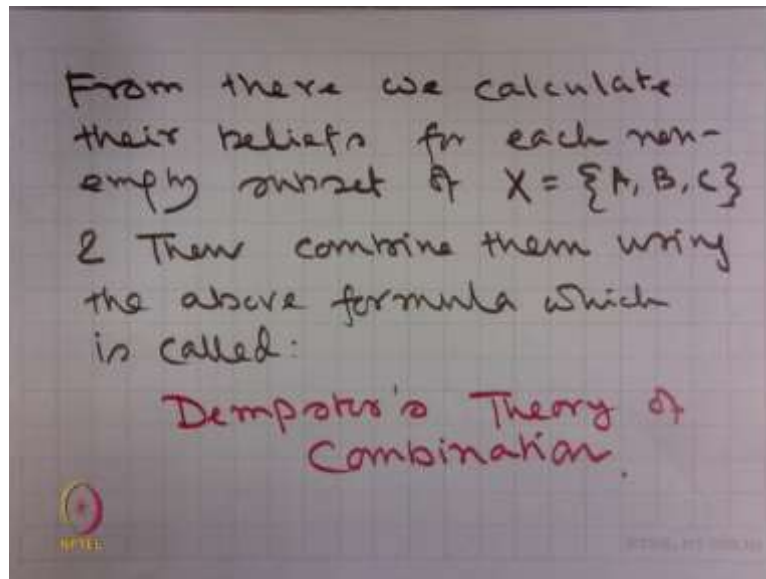 From there we calculate
their beliefs for each non-
empty subset of X = {A, B, C}
& Then combine them using
the above formula which
is called:
Dempster's Theory of
Combination.
NPTEL